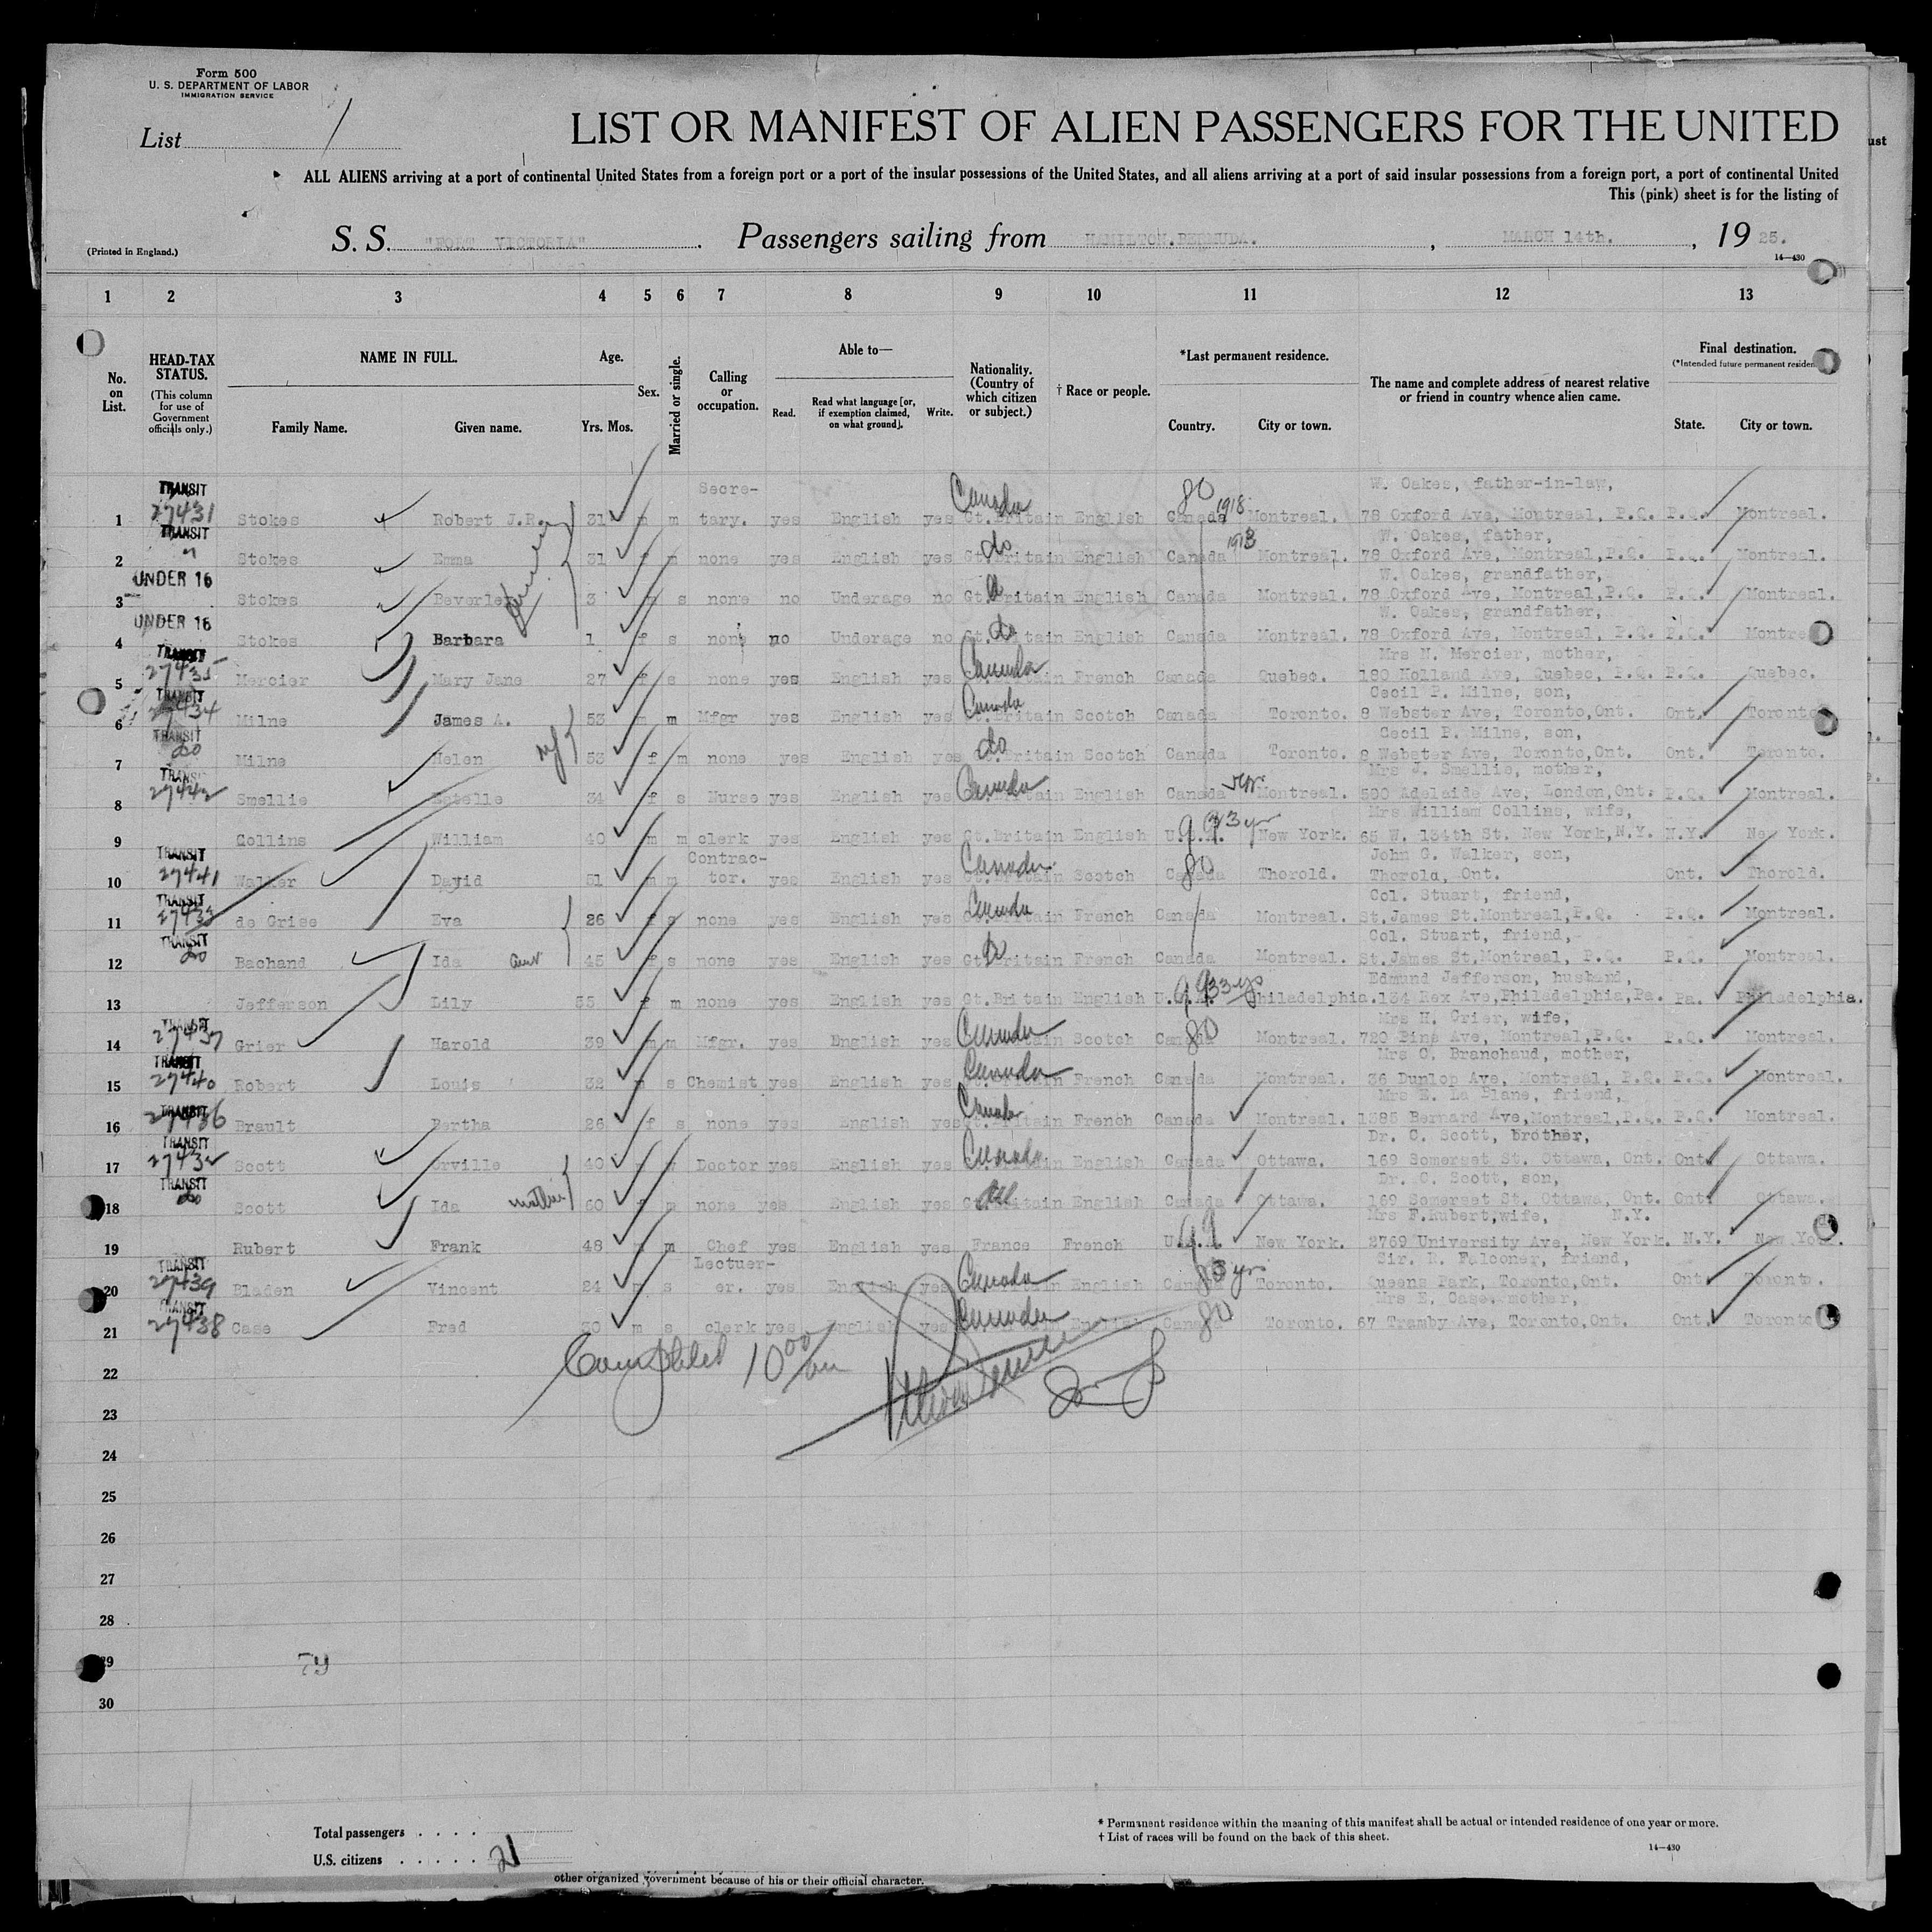 Form 500
U. S. DEPARTMENT OF LABOR
IMMIGRATION SERVICE
List 1
LIST OR MANIFEST OF ALIEN PASSENGERS FOR THE UNITED
ALL ALIENS arriving at a port of continental United States from a foreign port or a port of the insular possessions of the United States, and all aliens arriving at a port of said insular possessions from a foreign port, a port of continental United
This (pink) sheet is for the listing of
(Printed in England.)
S. S. "FORT VICTORIA". Passengers sailing from HAMILTON.BERMUDA. , MARCH 14th. , 19 25.
14—430
1 2 3 4 5 6 7 8 9 10 11 12 13
No. on List.
HEAD-TAX STATUS.
(This column for use of Government officials only.)
NAME IN FULL.
Family Name. Given name.
Age.
Yrs. Mos.
Sex.
Married or single.
Calling or occupation.
Able to—
Read. Read what language [or, if exemption claimed, on what ground]. Write.
Nationality. (Country of which citizen or subject.)
† Race or people.
*Last permanent residence.
Country. City or town.
The name and complete address of nearest relative or friend in country whence alien came.
Final destination.
(*Intended future permanent residen
State. City or town.
TRANSIT Secre- Canada 80 1918 W. Oakes, father-in-law,
1 27431 Stokes Robert J.R. 31 m m tary. yes English yes Gt.Britain English Canada Montreal. 78 Oxford Ave, Montreal, P.Q. P.Q. Montreal.
TRANSIT do 1913 W. Oakes, father,
2 Stokes Emma 31 f m none yes English yes Gt.Britain English Canada Montreal. 78 Oxford Ave, Montreal,P.Q. P.Q. Montreal.
UNDER 16 W. Oakes, grandfather,
3 Stokes Beverley 3 s none no Underage no Gt.Britain English Canada Montreal. 78 Oxford Ave, Montreal,P.Q. P.Q. Montreal.
UNDER 16 do W. Oakes, grandfather,
4 Stokes Barbara 1 f s none no Underage no Gt.Britain English Canada Montreal. 78 Oxford Ave, Montreal, P.Q. P.Q. Montre
TRANSIT Canada Mrs N. Mercier, mother,
5 27435 Mercier Mary Jane 27 f s none yes English yes Gt.Britain French Canada Quebec. 180 Holland Ave, Quebec, P.Q. P.Q. Quebec.
TRANSIT Canada Cecil B. Milne, son,
6 27434 Milne James A. 53 m m Mfgr yes English yes Gt.Britain Scotch Canada Toronto. 8 Webster Ave, Toronto,Ont. Ont. Toronto
TRANSIT do Cecil B. Milne, son,
7 do Milne Helen wf 53 f m none yes English yes Gt.Britain Scotch Canada Toronto. 8 Webster Ave, Toronto,Ont. Ont. Toronto.
TRANSIT Canada Mrs J. Smellie, mother,
8 27442 Smellie Estelle 34 f s Nurse yes English yes Gt.Britain English Canada Montreal. 590 Adelaide Ave, London,Ont. P.Q. Montreal.
99 33 yr Mrs William Collins, wife,
9 Collins William 40 m m clerk yes English yes Gt.Britain English U.S.A. New York. 65 W. 134th St. New York,N.Y. N.Y. New York.
TRANSIT Contrac- Canada 80 John G. Walker, son,
10 27441 Walker David 51 m m tor. yes English yes Gt.Britain Scotch Canada Thorold. Thorold, Ont. Ont. Thorold.
TRANSIT Canada Col. Stuart, friend,
11 27433 de Grise Eva 26 f s none yes English yes Gt.Britain French Canada Montreal. St.James St.Montreal,P.Q. P.Q. Montreal.
TRANSIT do Col. Stuart, friend,
12 do Bachand Ida aunt 45 f s none yes English yes Gt.Britain French Canada Montreal. St.James St.Montreal, P.Q. P.Q. Montreal.
99 33 yrs Edmund Jefferson, husband,
13 Jefferson Lily 55 f m none yes English yes Gt.Britain English U.S.A. Philadelphia. 134 Rex Ave,Philadelphia,Pa. Pa. Philadelphia.
TRANSIT Canada 80 Mrs H. Grier, wife,
14 27437 Grier Harold 39 m m Mfgr. yes English yes Gt.Britain Scotch Canada Montreal. 720 Pine Ave, Montreal,P.Q. P.Q. Montreal.
TRANSIT Canada Mrs O. Branchaud, mother,
15 27440 Robert Louis 32 m s Chemist yes English yes Gt.Britain French Canada Montreal. 36 Dunlop Ave, Montreal, P.Q. P.Q. Montreal.
TRANSIT Canada Mrs E. La Plane, friend,
16 27436 Brault Bertha 26 f s none yes English yes Gt.Britain French Canada Montreal. 1585 Bernard Ave,Montreal,P.Q. P.Q. Montreal.
TRANSIT Canada Dr. C. Scott, brother,
17 27432 Scott Orville 40 Doctor yes English yes Gt.Britain English Canada Ottawa. 169 Somerset St. Ottawa, Ont. Ont. Ottawa.
TRANSIT do Dr. C. Scott, son,
18 do Scott Ida mother 60 f m none yes English yes Gt.Britain English Canada Ottawa. 169 Somerset St. Ottawa, Ont. Ont. Ottawa.
99 Mrs F.Rubert,wife, N.Y.
19 Rubert Frank 48 m m Chef yes English yes France French U.S.A. New York. 2769 University Ave, New York. N.Y. New York.
TRANSIT Lectuer- Canada 83 yr Sir. R. Falconer, friend,
20 27439 Bladen Vincent 24 m s er. yes English yes Gt.Britain English Canada Toronto. Queens Park, Toronto,Ont. Ont. Toronto.
TRANSIT Canada 80 Mrs E. Case. mother,
21 27438 Case Fred 30 m s clerk yes English yes Gt.Britain English Canada Toronto. 67 Tramby Ave, Toronto,Ont. Ont. Toronto
Completed 10 00/am
22
23
24
25
26
27
28
29
79
30
Total passengers . . . .
U.S. citizens . . . . . 21
* Permanent residence within the meaning of this manifest shall be actual or intended residence of one year or more.
† List of races will be found on the back of this sheet.
14—430
other organized government because of his or their official character.